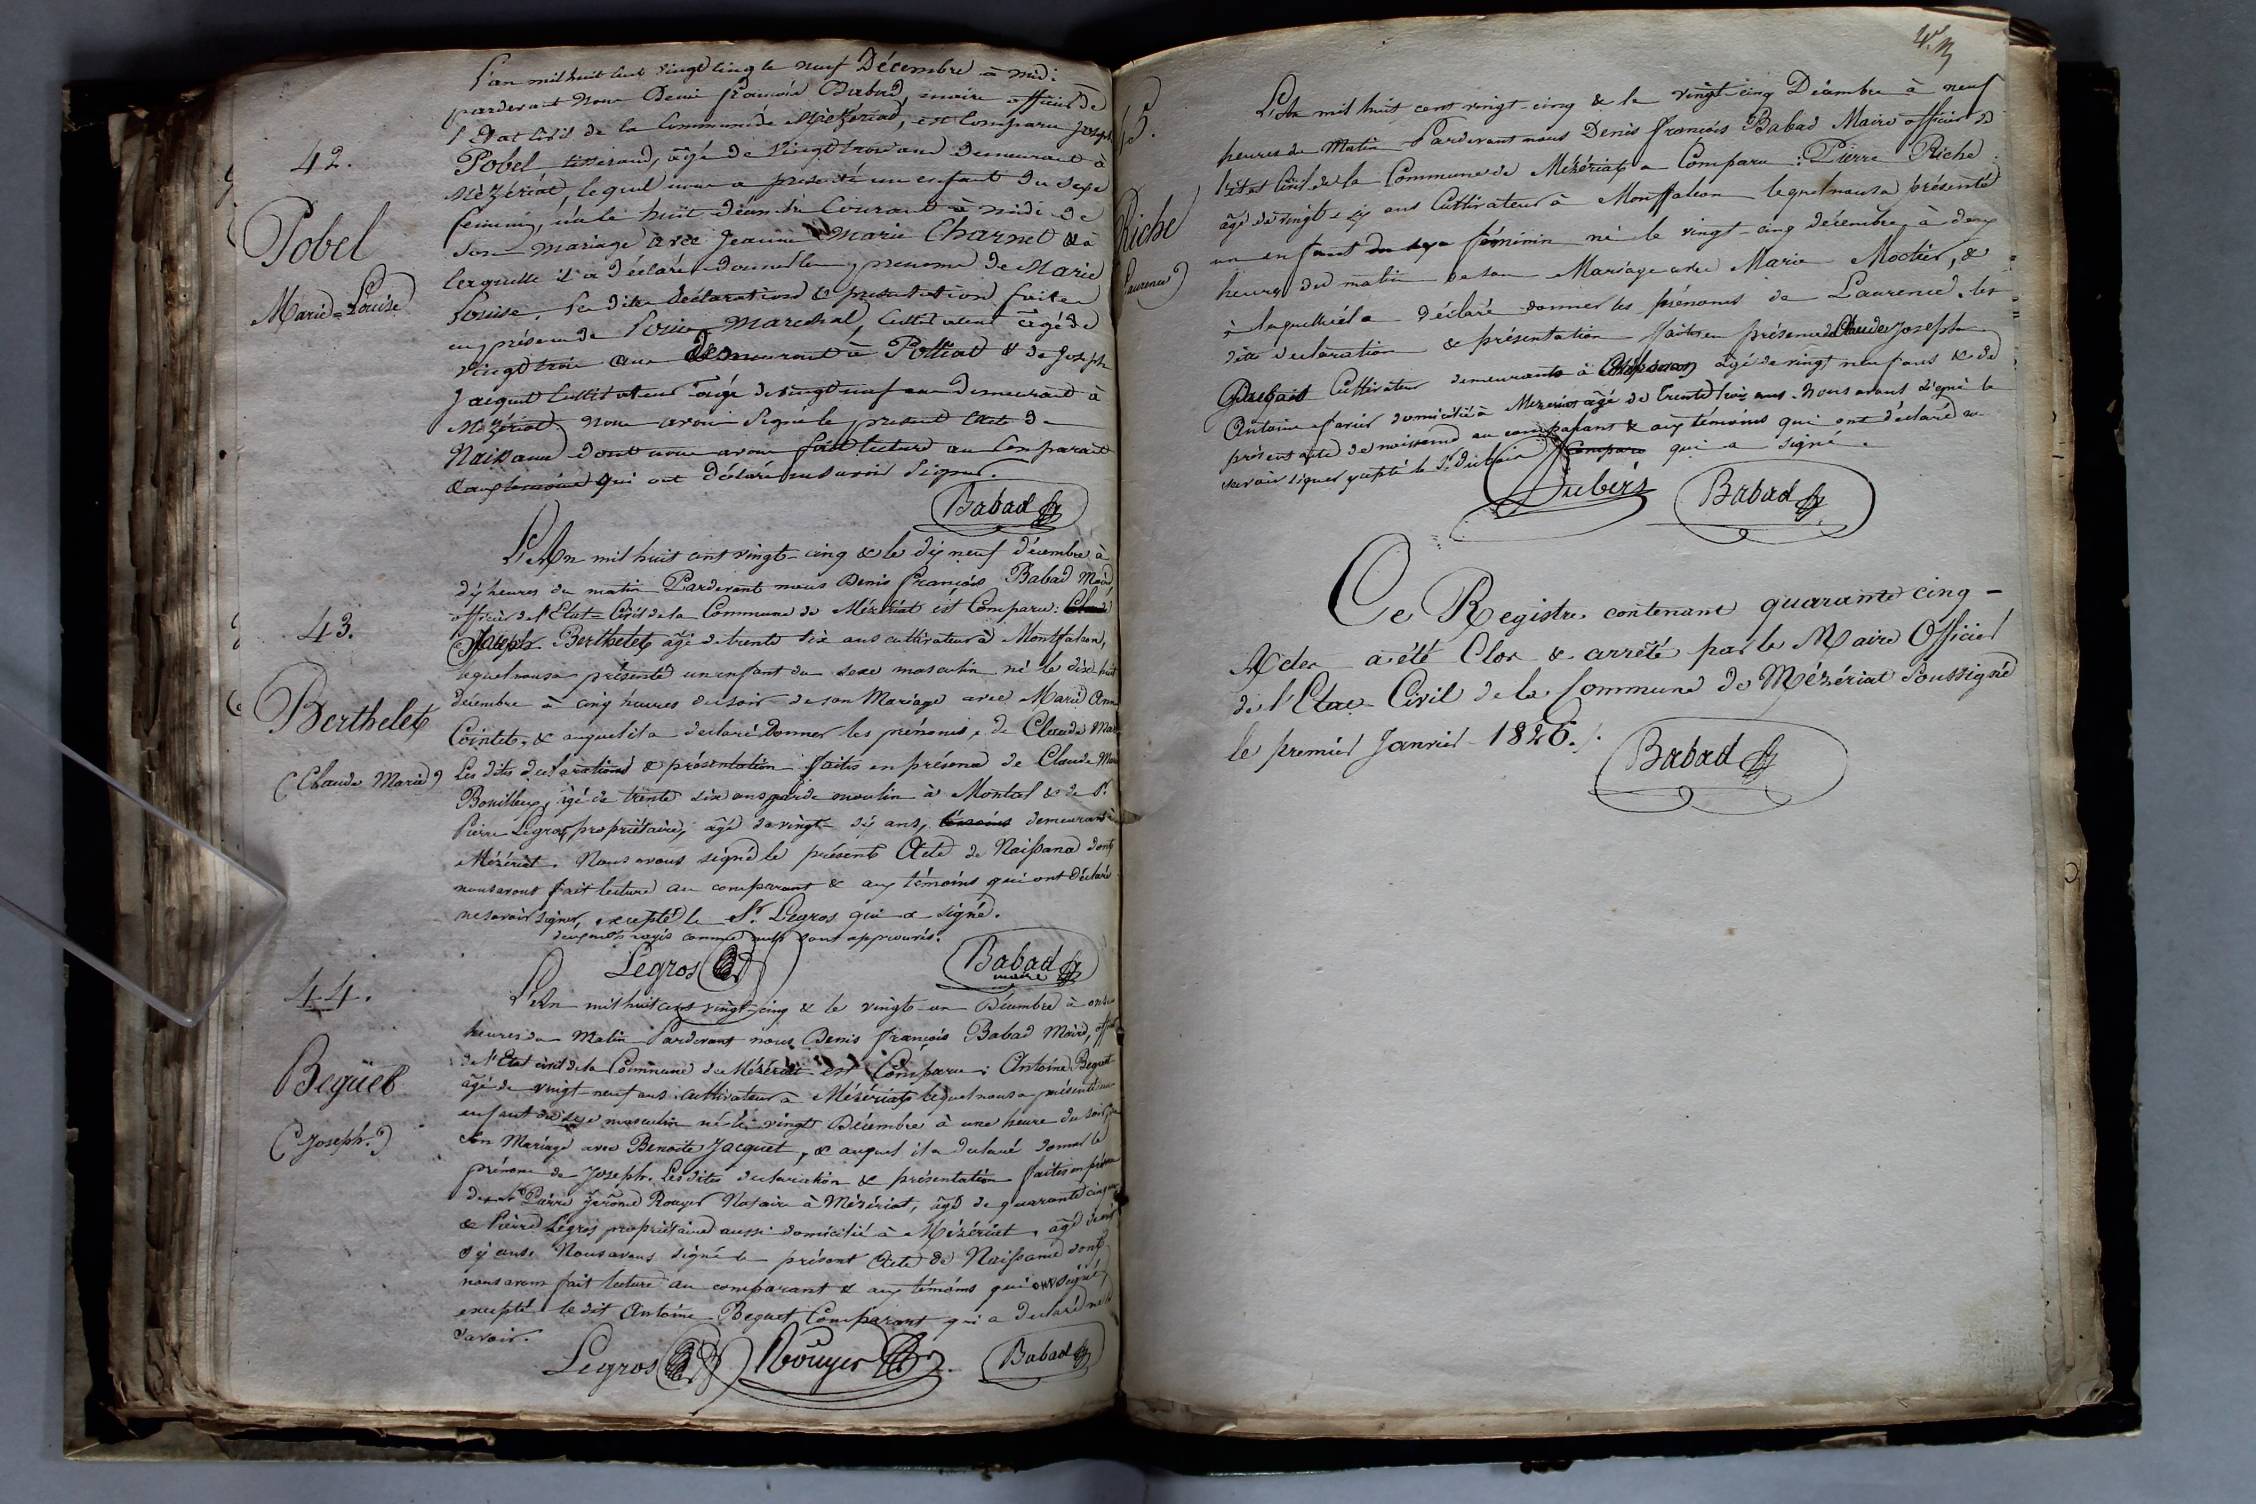 42.
Pobel
Marie=Louise
L'an mil huit cent vingt cinq le neuf Décembre à midi
pardevant nous Denis françois Babad, maire officier de
l'Etat Civil de la Commune de Mézériat, est Comparu Joseph
Pobel tisserand, âgé de vingt trois ans demeurant à
Mézériat, lequel nous a présenté un enfant du Sexe
féminin, née le huit décembre Courant à midi de
son mariage avec Jeanne Marie Charnet & à
lequelle il a déclaré donner les prenoms de Marie
Louise. Les dites déclaration & présentation faites
en présence de Louis Marechal, Cultivateur âgé de
vingt trois ans demeurant à Polliat & de Joseph
Jacquet Cultivateur âgé de vingt neuf ans demeurant à
Mézériat. Nous avons Signé le présent Acte de
Naissance dont nous avons fait lecture au Comparant
& aux temoins qui ont déclaré ne savoir Signer.
Babad
43.
Berthelet
(Claude Marie)
L'An mil huit cent vingt-cinq & le dix neuf décembre à
dix heures du matin Pardevant nous Denis françois Babad Maire
officier de l'Etat=Civil de la Commune de Mézériat est Comparu: Claude
Joseph Berthelet âgé de trente six ans cultivateur à Montfalcon,
lequel nous a présenté un enfant du sexe masculin né le dix huit
décembre à cinq heures du soir de son Mariage avec Marie Anne
Cointet, & auquel il a déclaré Donner les prénoms, de Claude Marie
Les dites déclarations & présentation faites en présence de Claude Marie
Bouilloux, âgé de trente six ans garde moulin à Montcel & de Sr.
Pierre Legros, propriétaire, âgé de vingt-dix ans, témoins demeurant à
Mézériat. Nous avons signé le présent Acte de Naissance dont
nous avons fait lecture au comparant & aux témoins qui ont déclaré
ne savoir signer, excepté le Sr. Legros qui a signé.
deux mots rayés comme nuls sont approuvés.
Legros
Babad
maire
44.
Beguet
(Joseph.)
L'An mil huit cent vingt-cinq & le vingt-un Décembre à onze
heures du Matin Pardevant nous Denis François Babad Maire, officier
de l'Etat civil de la Commune de Mézériat est Comparu: Antoine Beguet
âgé de vingt-neuf ans cultivateur à Mézériat lequel nous a présenté un
enfant du sexe masculin né le vingt Décembre à une heure du soir, de
Son Mariage avec Benoite Jacquet, & auquel il a déclaré donner le
prénom de Joseph. Les dites déclaration & présentation faites en présence
de Sr. Pierre Jerôme Rouyer Notaire à Mézériat, âgé de quarante cinq ans
& Pierre Legros propriétaire aussi domicilié à Mézériat, âgé de vingt
dix ans. Nous avons signé le présent Acte de Naissance dont
nous avons fait lecture au comparant & aux témoins qui ont signé,
excepté le dit Antoine Beguet Comparant qui a déclaré ne le
savoir.
Legros Rouyer Babad
45.
Riche
Laurence)
L'An mil huit cent vingt-cinq & le vingt-cinq Décembre à neuf
heures du Matin Pardevant nous Denis françois Babad Maire officier de
l'état Civil de la Commune de Mézériat a Comparu: Pierre Riche
âgé de vingt-six ans Cultivateur à Montfalcon lequel nous a présenté
un enfant du sexe féminin né le vingt-cinq décembre à deux
heures du matin de son Mariage avec Marie Moctier, &
à laquelle il a déclaré donner les prénoms de Laurence. les
dites déclaration & présentation faites en présence de Claude Joseph
Cultivateur demeurant à âgé de vingt neuf ans & de
Antoine farier domicilié à Mézériat âgé de trente trois ans. Nous avons signé le
présent acte de naissance au comparant & aux témoins qui ont déclaré ne
savoir signer excepté le Sr. Comparu qui a signé.
Babad
4.
Ce Registre contenant quarante cinq -
Actes a été Clos & arrêté par le Maire Officier
de l'Etat-Civil de la Commune de Mézériat Soussigné
le premier Janvier 1826.
Babad